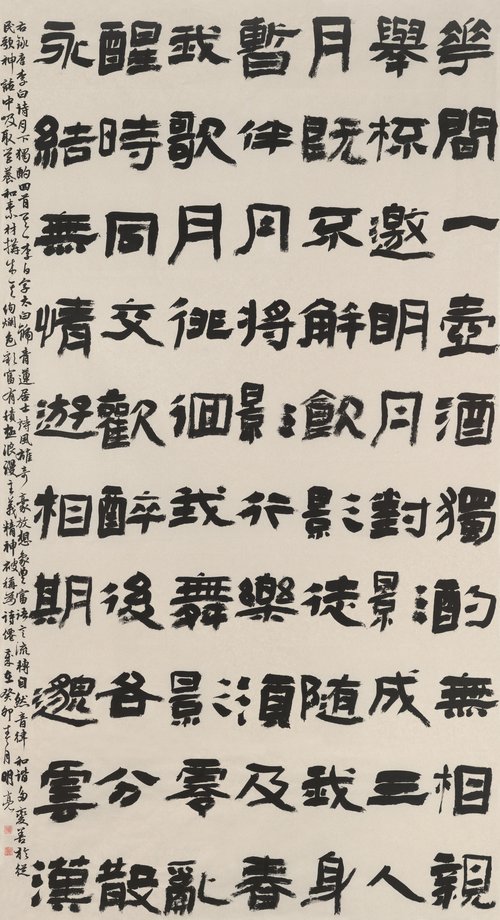 花間一壺酒獨酌無相親
舉杯邀明月對影成三人
月既不解飲影徒隨我身
暫伴月將影行樂須及春
我歌月徘徊我舞影零亂
醒時同交歡醉後各分散
永結無情遊相期邈雲漢
右錄唐李白詩月下獨酌四首其一李白字太白號青蓮居士詩風雄奇豪放想象豐富語言流轉自然音律和諧多變善於從
民歌神話中吸取營養和素材構成其絢爛色彩富有積極浪漫主義精神被稱為詩僊歲在癸卯春月明亮